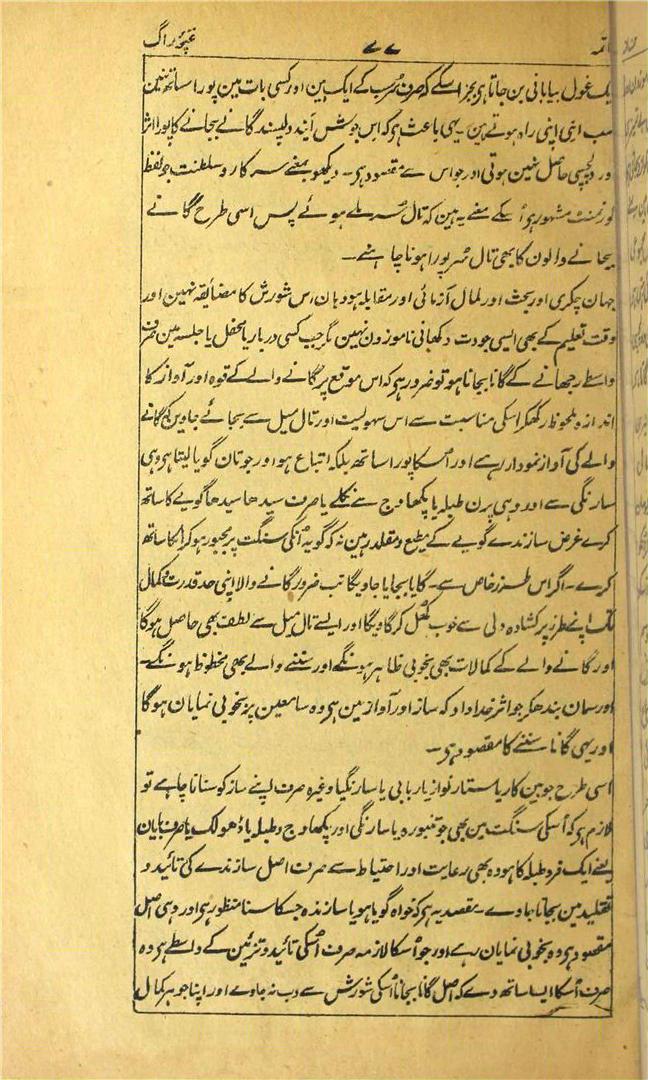 غنچۂ راگ ۷۷ خاتمہ
ایک غول بیابانی بن جاتا ہی بجز اسکے کہ صرف سُرب کے ایک ہین اور کسی بات مین پورا ساتھ نہین
سب اپنی اپنی راہ ہوتے ہین۔ یہی باعث ہی کہ اس جوشش آیند و دلپسند گانے بجانے کا پورا اثر
اور دلچسپی حاصل نہین ہوتی اور جو اس سے مقصود ہی۔ دیکھو بمعنے سرکار و سلطنت جو لفظ
گورنمنٹ مشہور ہی اُسکے معنے یہ ہین کہ تال سُر ملے ہوئے پس اسی طرح گانے
بجانے والون کا بھی تال سُر پورا ہونا چاہئے۔
جہان چکری اور بحث اور کمال آزمائی اور مقابلہ ہو وہان اس شورش کا مضائقہ نہین اور
وقت تعلیم کے بھی ایسی جودت دکھانی ناموزون نہین مگر جب کسی دربار یا محفل یا جلسہ مین صرف
واسطے رجھانے کے گانا بجانا ہو تو ضرور ہی کہ اس موقع پر گانے والے کے قوہ اور آواز کا
اندازہ ملحوظ رکھکر اسکی مناسبت سے اس سہولیت اور تال میل سے بجائے جاوین کہ گانے
والے کی آواز نمودار رہے اور اُسکا پورا ساتھ بلکہ اتباع ہو اور جو تان گویا لیتا ہی وہی
سارنگی سے اور وہی پرن طبلہ یا پکھاوج سے نکلے یا صرف سیدھا سیدھا گویے کا ساتھ
کرے غرض سازندے گویے کے مطیع و مقلد رہین نہ کہ گویہ اُنکی سنگت پر مجبور ہو کر اُنکا ساتھ
کرے۔ اگر اس طرز خاص سے گایا بجایا جاویگا تب ضرور گانے والا اپنی حد قدرت و کمال
تک اپنے طرز پر کشادہ دلی سے خوب کھل کر گاویگا اور ایسے تال میل سے لطف بھی حاصل ہوگا
اور گانے والے کے کمالات بھی بخوبی ظاہر ہونگے اور سننے والے بھی محظوظ ہونگے۔
اور سمان بندھکر جو اثر خداداد کہ ساز اور آواز مین ہی وہ سامعین پر بخوبی نمایان ہوگا
اور یہی گانا سننے کا مقصود ہی۔
اسی طرح جو بین کار یا ستار نواز یا ربابی یا سارنگیا وغیرہ صرف اپنے ساز کو سنانا چاہے تو
لازم ہی کہ اُسکی سنگت مین بھی جو تنبورہ یا سارنگی اور پکھاوج و طبلہ یا ڈھولک یا صرف بایان
یعنے ایک فرد طبلہ کا ہو وہ بھی رعایت اور احتیاط سے صرف اصل سازندے کی تائید و
تقلید مین بجانا جاوے۔ مقصد یہ ہی کہ خواہ گویا ہو یا سازندہ جسکا سننا منظور ہی اور وہی اصل
مقصود ہی وہ بخوبی نمایان رہے اور جو اُسکا لازمہ صرف اُسکی تائید و تزئین کے واسطے ہی وہ
صرف اُسکا ایسا ساتھ دے کہ اصل گانا بجانا اُسکی شورش سے دب نہ جاوے اور اپنا جوہر کمال